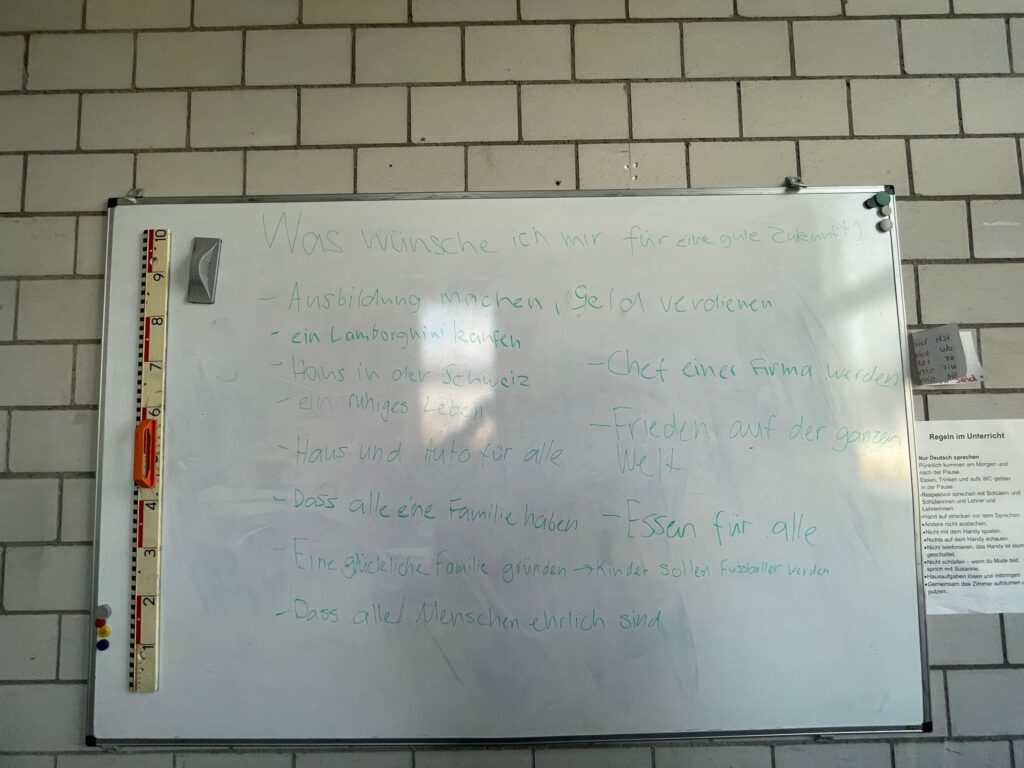 Was wünsche ich mir für eine gute Zukunft?
- Ausbildung machen, Geld verdienen
- ein Lamborghini kaufen
- Haus in der Schweiz
- ein ruhiges Leben
- Haus und Auto für alle
- Dass alle eine Familie haben
- Eine glückliche Familie gründen → Kinder sollen Fussballer werden
- Dass alle Menschen ehrlich sind
- Chef einer Firma werden
- Frieden auf der ganzen
Welt
- Essen für alle
10
9
8
7
6
4
3
2
1
Regeln im Unterricht
Nur Deutsch sprechen
Pünktlich kommen am Morgen und
nach der Pause.
Essen, Trinken und aufs WC gehen
in der Pause
-Respektvoll sprechen mit Schülern und
Schülerinnen und Lehrer und
Lehrerinnen.
•Hand auf strecken vor dem Sprechen
•Andere nicht auslachen.
•Nicht mit dem Handy spielen.
•Nichts auf dem Handy schauen.
•Nicht telefonieren, das Handy ist stumm
geschaltet.
•Nicht schlafen – wenn du Müde bist,
sprich mit Susanne.
•Hausaufgaben lösen und mitbringen
•Gemeinsam das Zimmer aufräumen u
putzen.